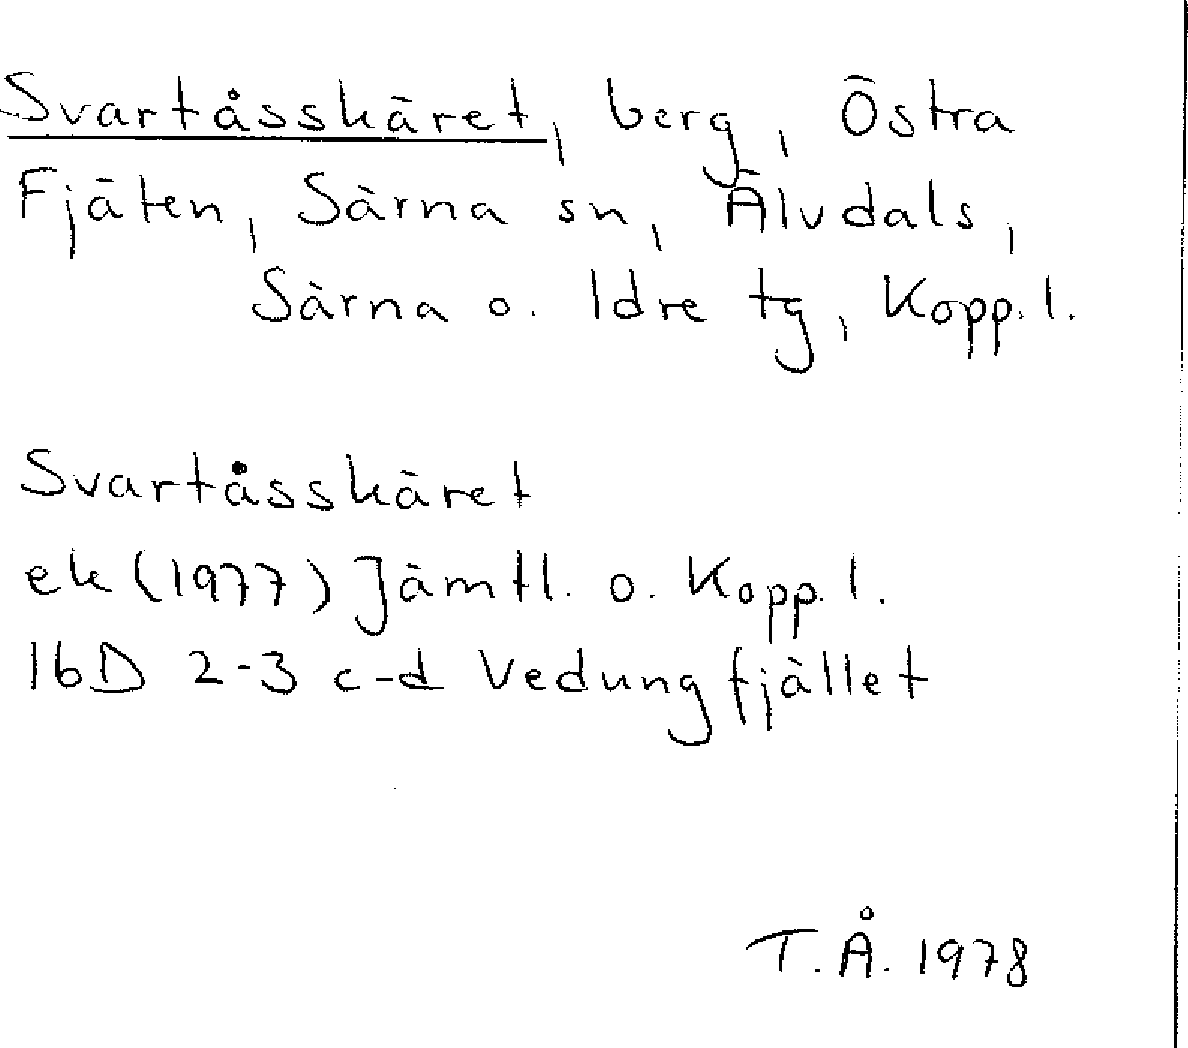 Svartåsskäret, berg, Östra
Fjäten, Särna sn, Älvdals,
Särna o. Idre tg, Kopp. l.
Svartåsskäret
ek (1977) Jämtl. o. Kopp. l.
16D 2-3 c-d Vedungfjället
T.Å. 1978